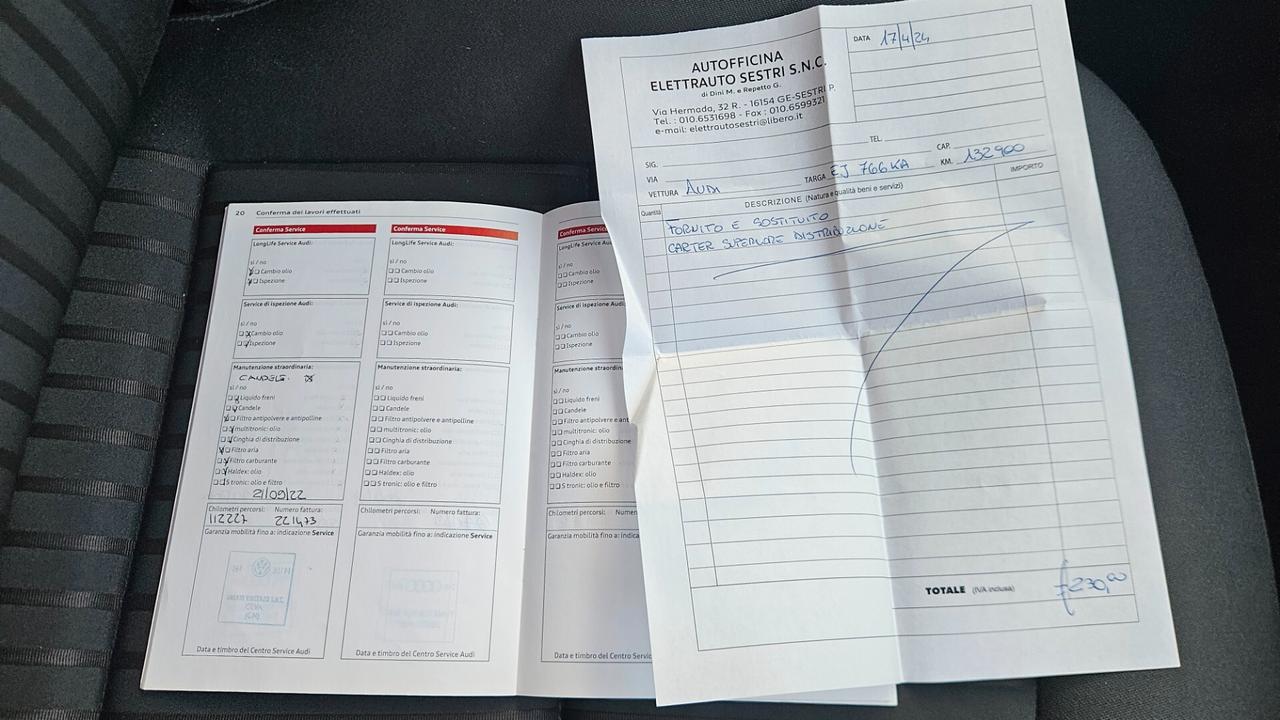 20 Conferma dei lavori effettuati
Conferma Service
LongLife Service Audi:
sì / no
Cambio olio
Ispezione
Service di ispezione Audi:
sì / no
Cambio olio
Ispezione
Manutenzione straordinaria:
CANDELE.
sì / no
Liquido freni
Candele
Filtro antipolvere e antipolline
multitronic: olio
Cinghia di distribuzione
Filtro aria
Filtro carburante
Haldex: olio
S tronic: olio e filtro
21/09/22
Chilometri percorsi: Numero fattura:
112227 221473
Garanzia mobilità fino a: indicazione Service
Data e timbro del Centro Service Audi
Conferma Service
LongLife Service Audi:
sì / no
Cambio olio
Ispezione
Service di ispezione Audi:
sì / no
Cambio olio
Ispezione
Manutenzione straordinaria:
sì / no
Liquido freni
Candele
Filtro antipolvere e antipolline
multitronic: olio
Cinghia di distribuzione
Filtro aria
Filtro carburante
Haldex: olio
S tronic: olio e filtro
Chilometri percorsi: Numero fattura:
Garanzia mobilità fino a: indicazione Service
Data e timbro del Centro Service Audi
Conferma Service
LongLife Service Audi:
sì / no
Cambio olio
Ispezione
Service di ispezione Audi:
sì / no
Cambio olio
Ispezione
Manutenzione straordinaria:
sì / no
Liquido freni
Candele
Filtro antipolvere e ant
multitronic: olio
Cinghia di distribuzione
Filtro aria
Filtro carburante
Haldex: olio
S tronic: olio e filtro
Chilometri percorsi: Numer
Garanzia mobilità fino a: indica
Data e timbro del Centro Service
AUTOFFICINA
ELETTRAUTO SESTRI S.N.C.
di Dini M. e Repetto G.
Via Hermada, 32 R. - 16154 GE-SESTRI P.
Tel. : 010.6531698 - Fax : 010.6599321
e-mail: elettrautosestri@libero.it
DATA 17/4/24
SIG. TEL.
VIA CAP.
VETTURA AUDI TARGA EJ 766KA KM. 132900
Quantità DESCRIZIONE (Natura e qualità beni e servizi) IMPORTO
FORNITO E SOSTITUITO
CARTER SUPERIORE DISTRIBUZIONE
TOTALE (IVA inclusa) £230,00